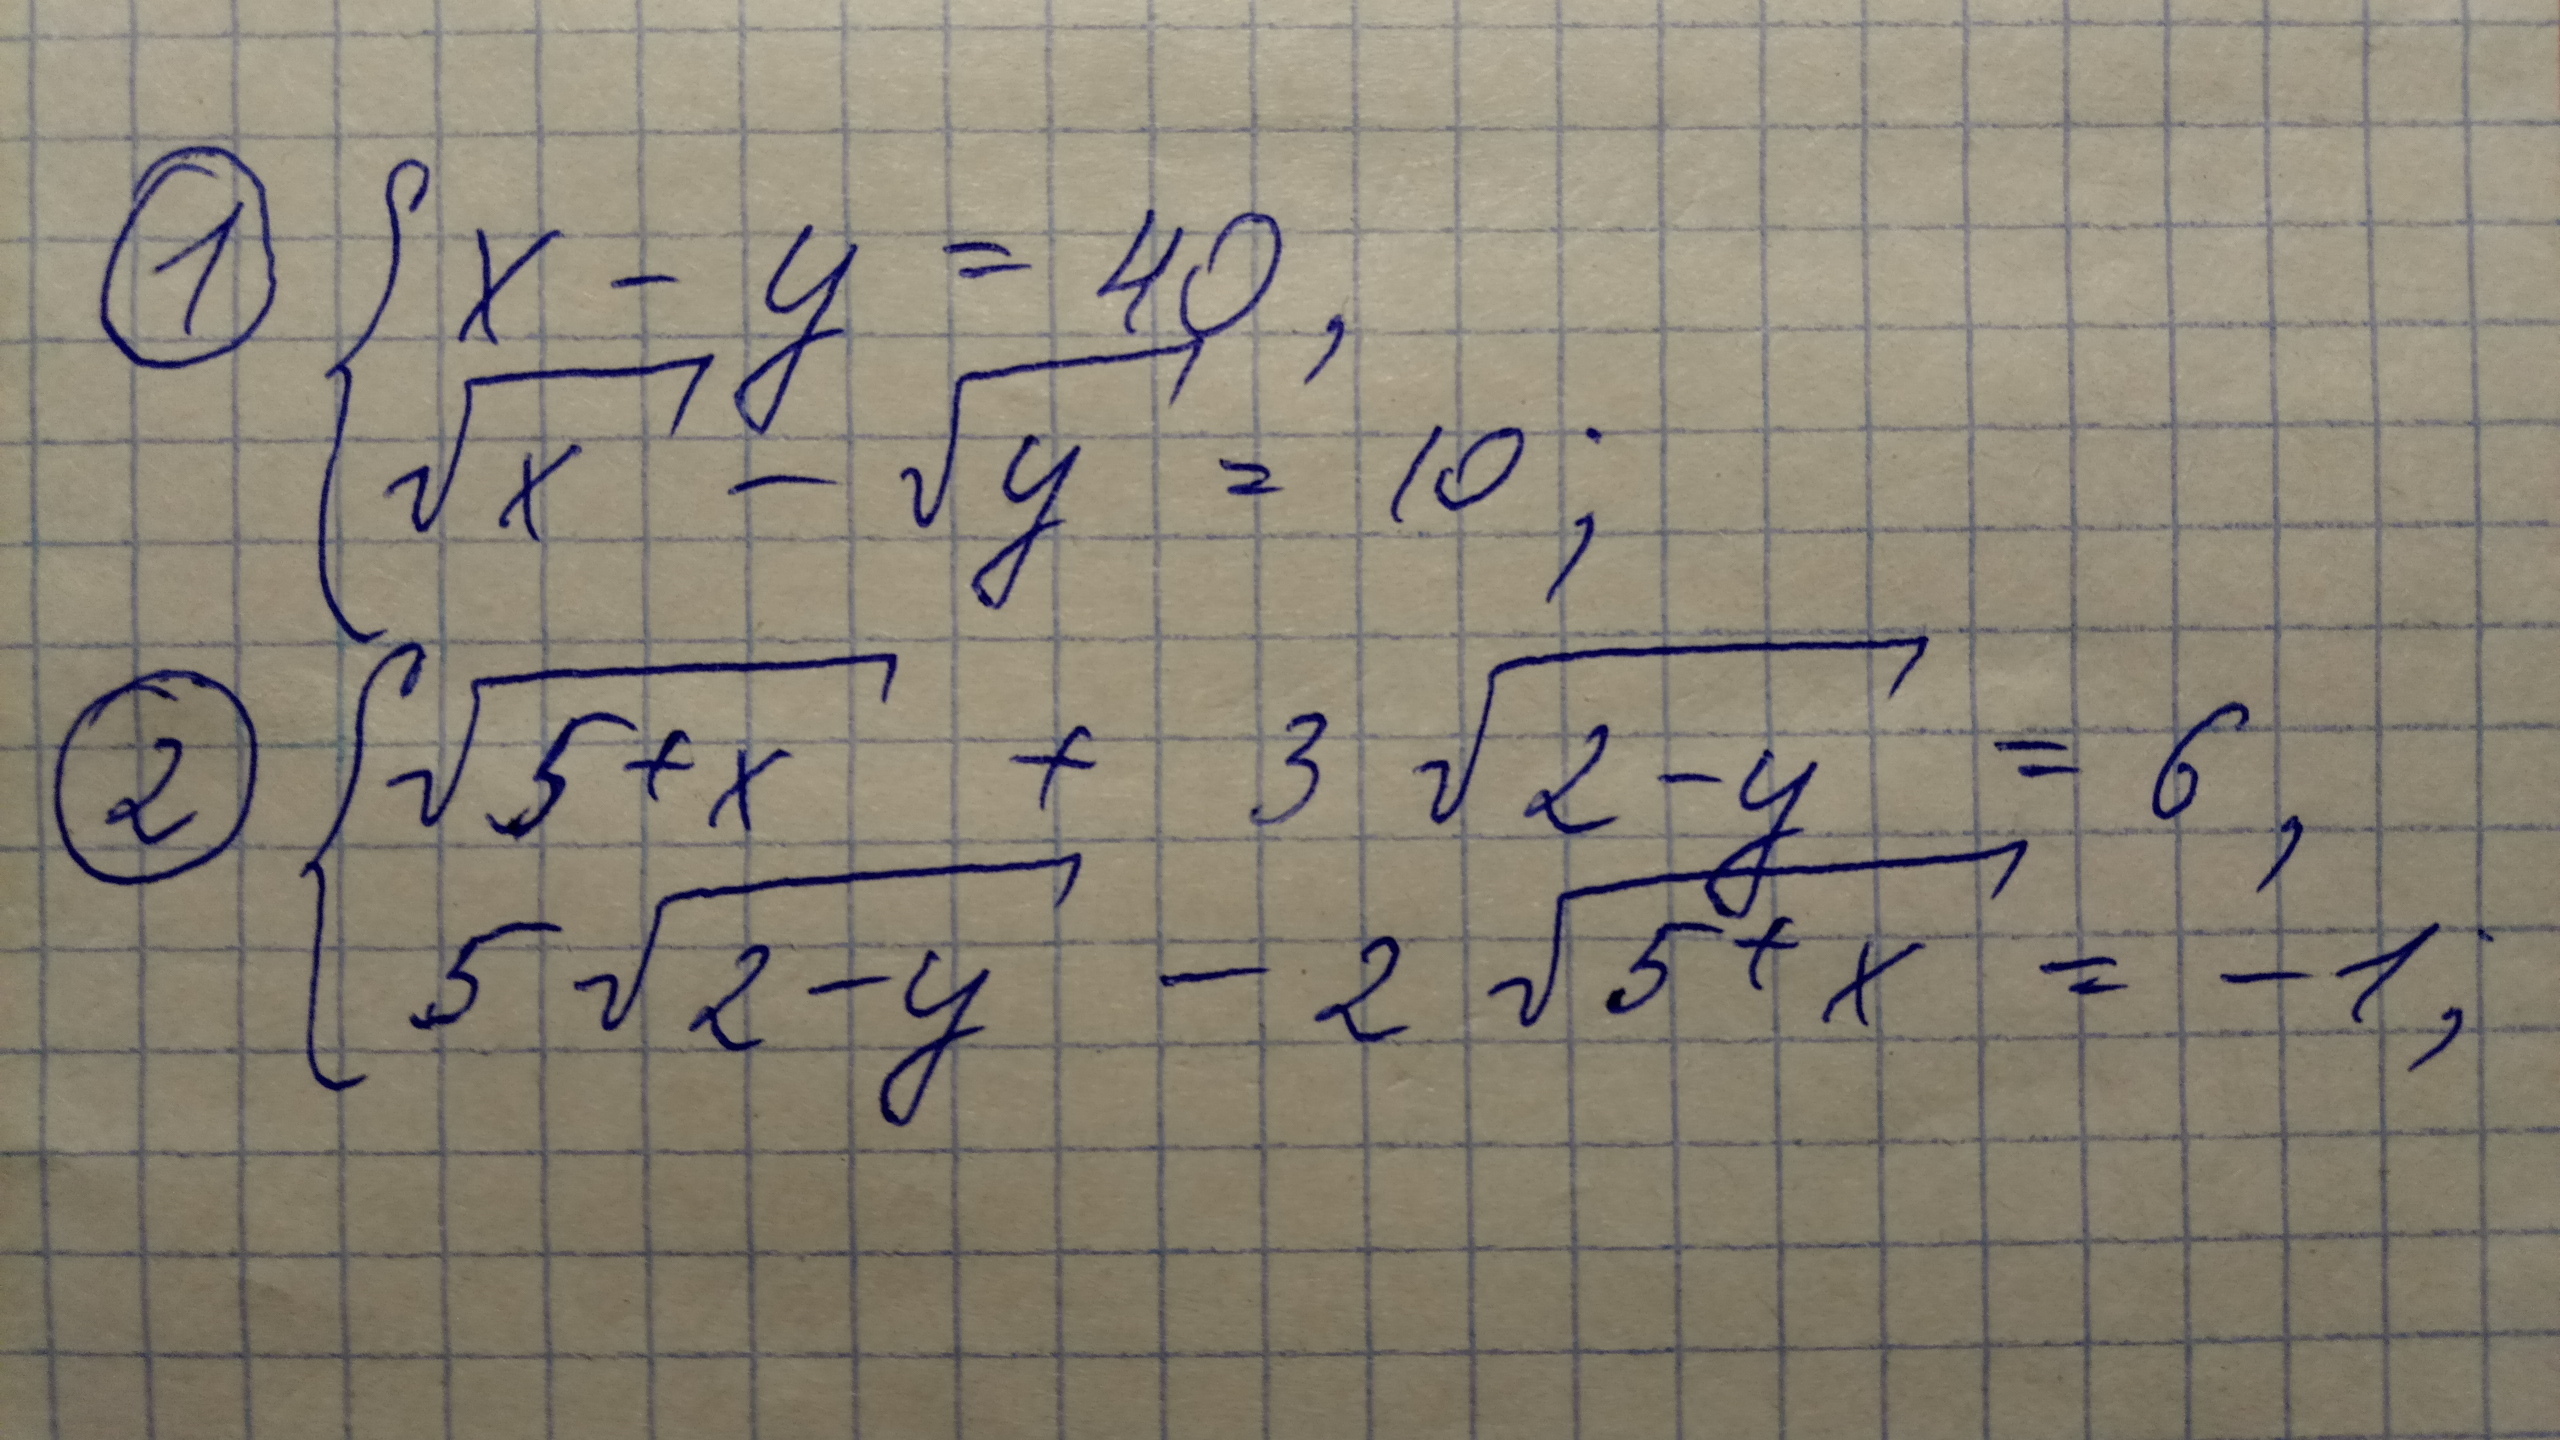 ① { x - y = 40,
√x - √y = 10;
② { √(5+x) + 3√(2-y) = 6,
5√(2-y) - 2√(5+x) = -1;